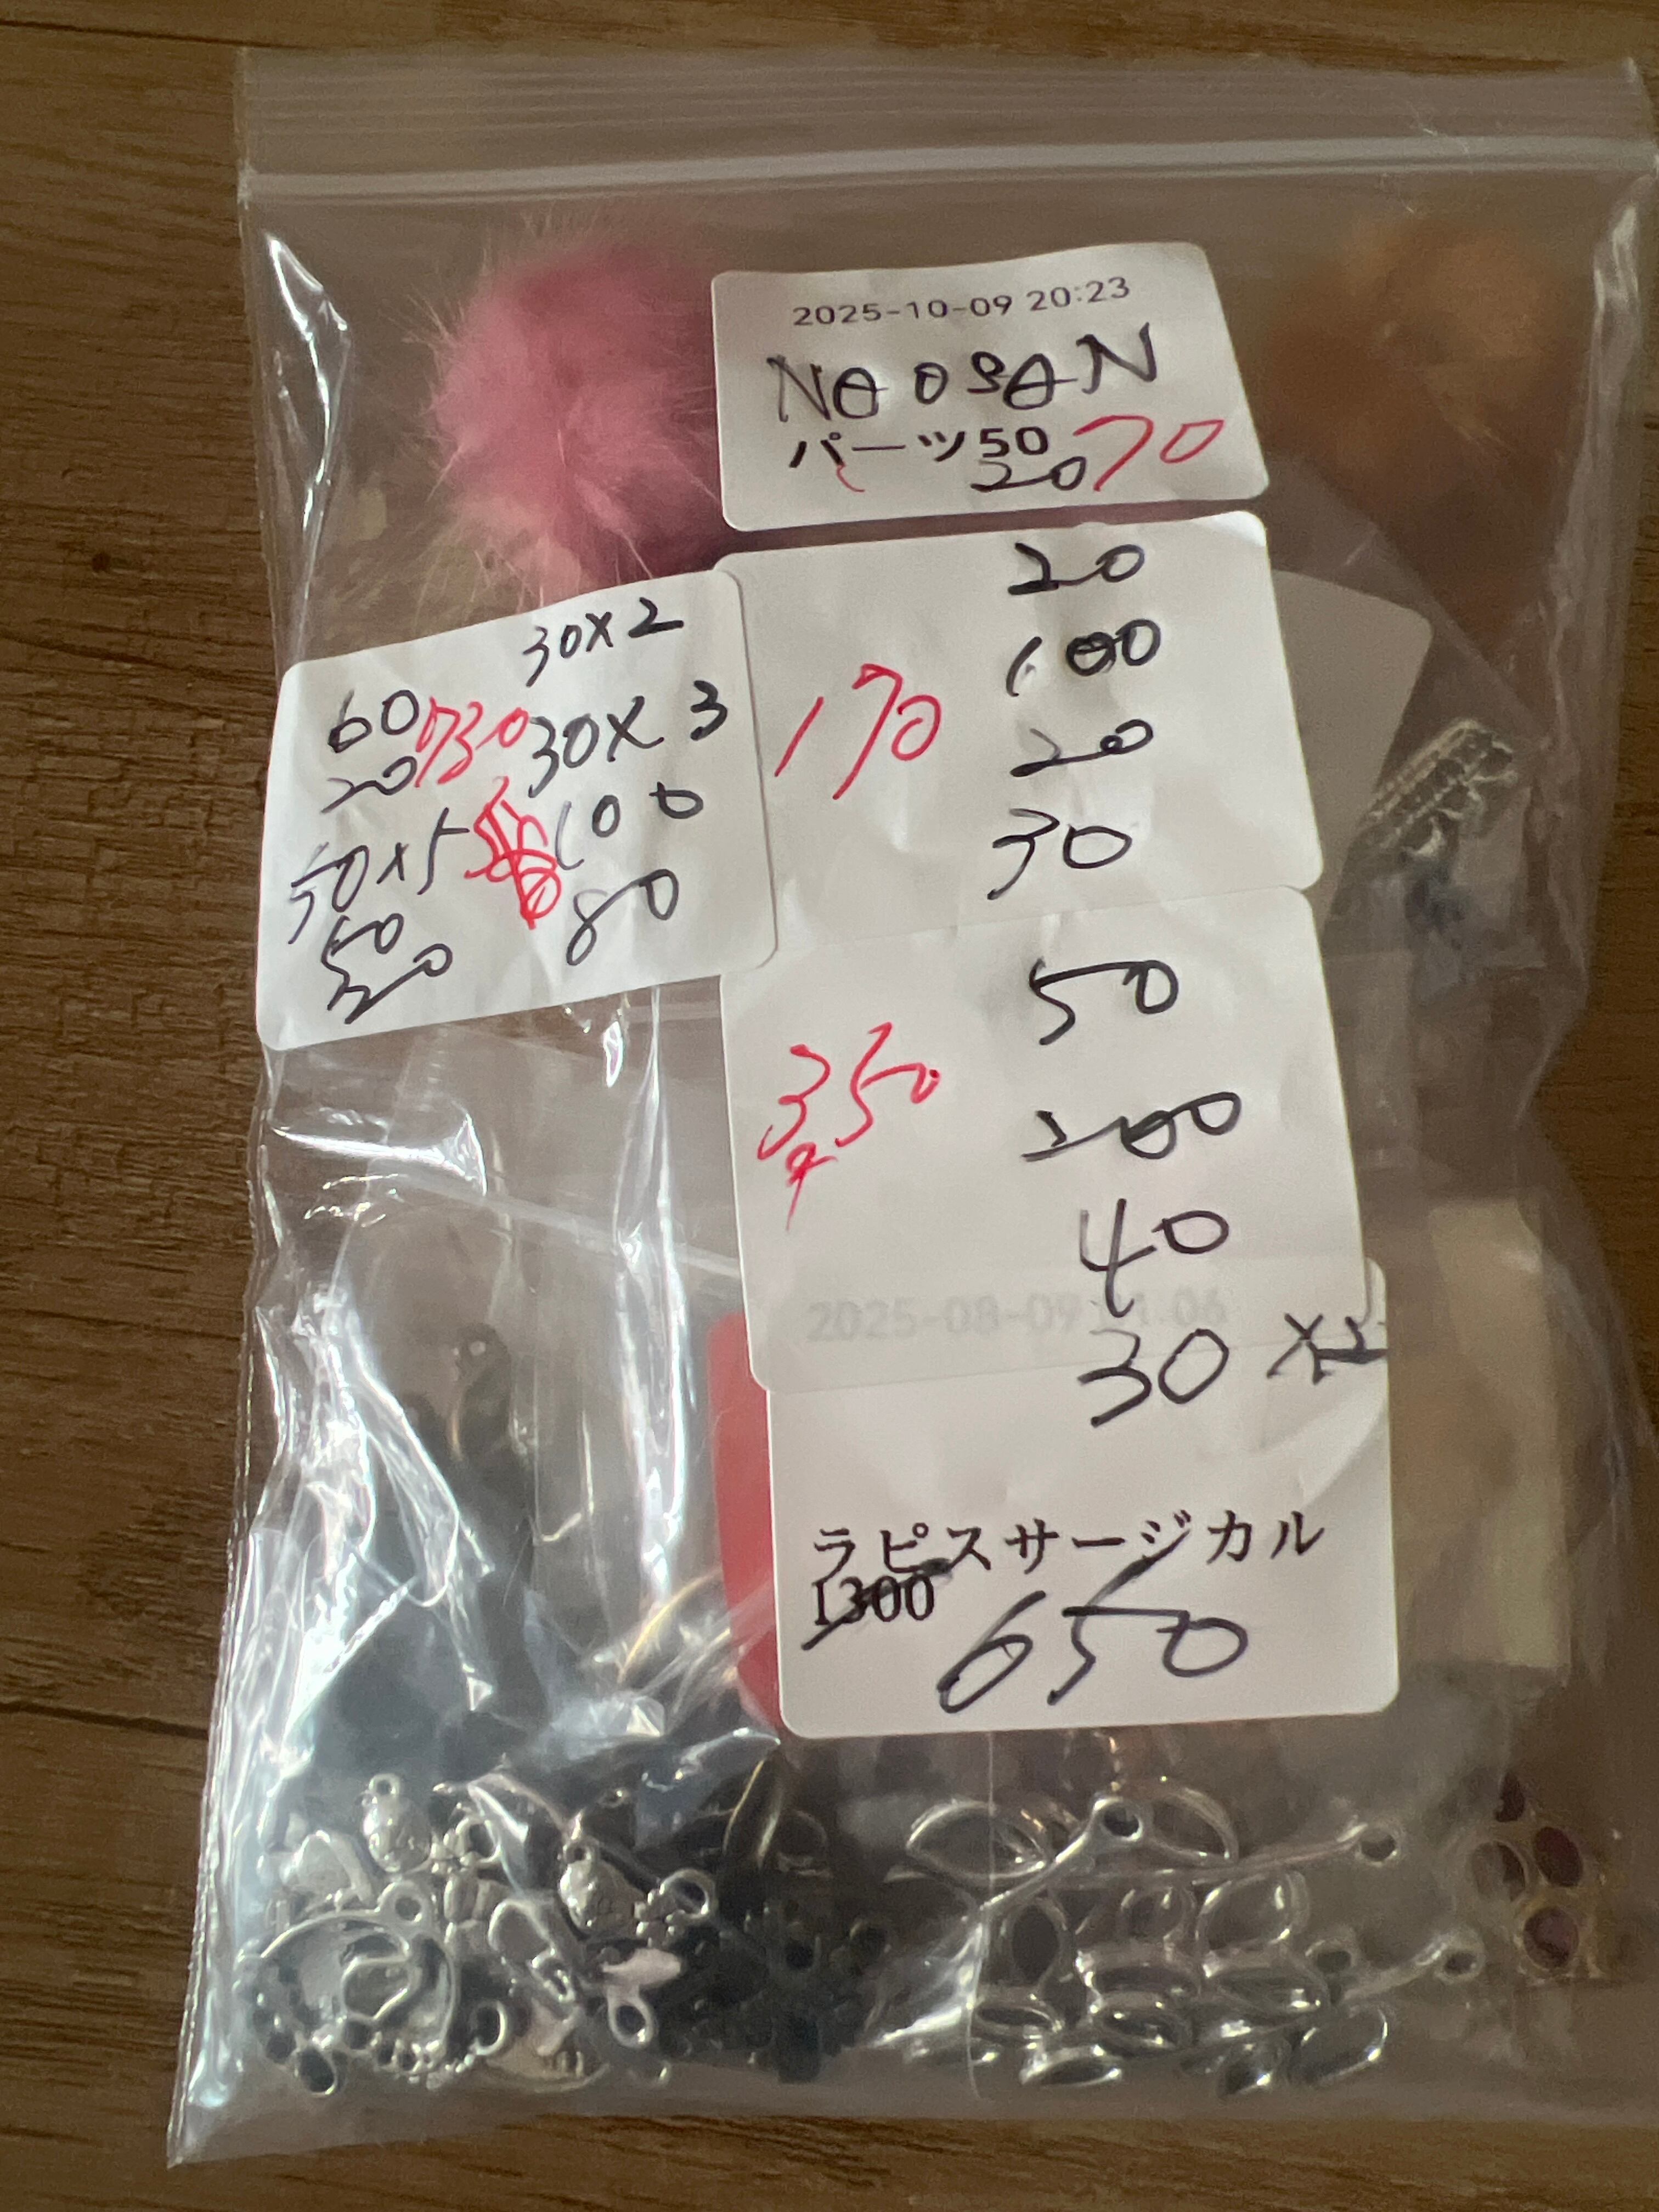 2025-10-09 20:23
NAOSAN
パーツ50
20 70
20
100
170
20
30
30×2
60 730 30×3
20
50×5 100
50 80
30
50
350
200
40
2025-08-09
30 ×2
ラピスサージカル
1300
650